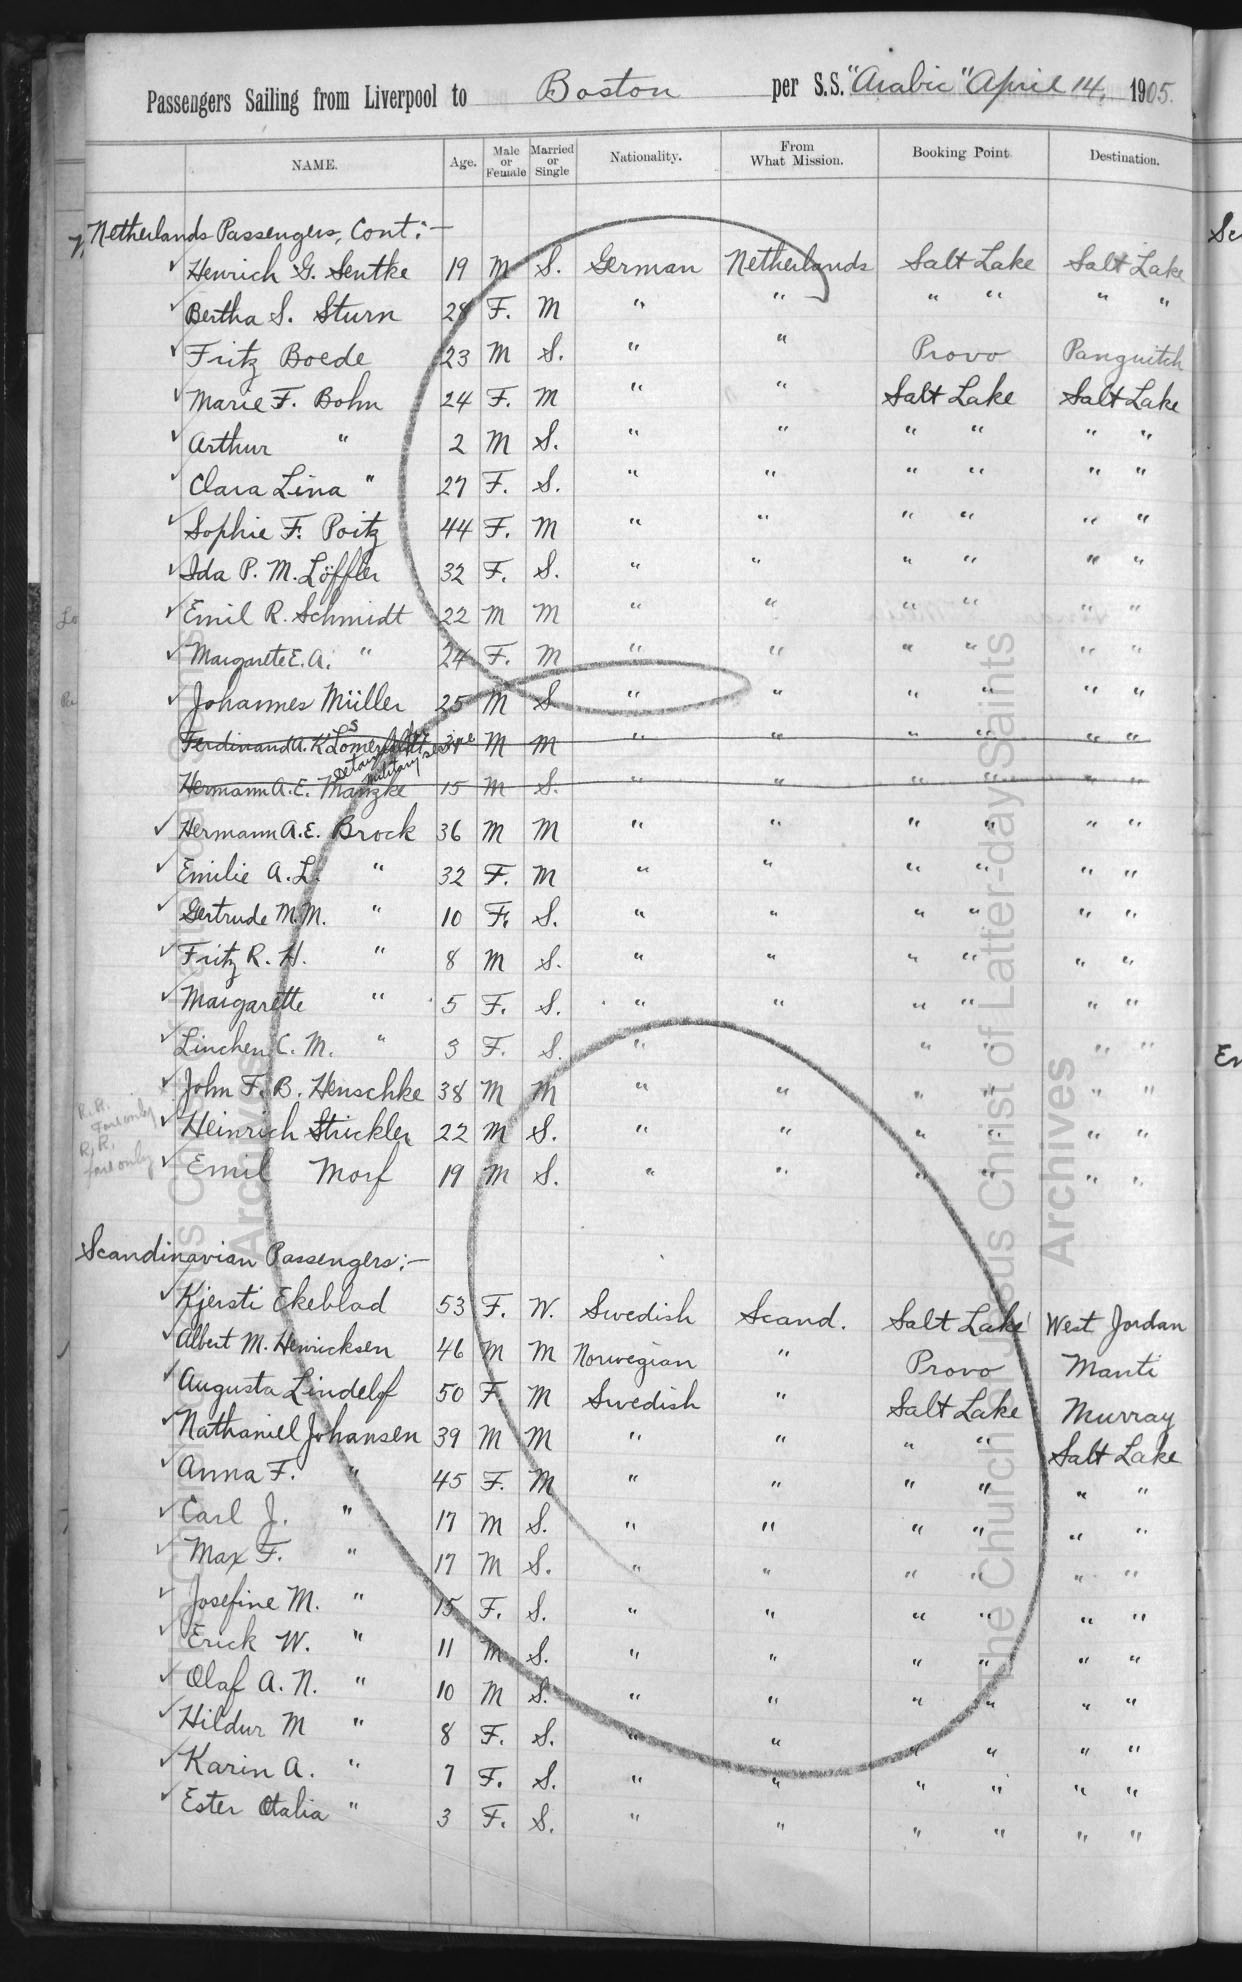 Passengers Sailing from Liverpool to Boston per S.S. "Arabic" April 14, 1905.
NAME. Age. Male or Female Married or Single Nationality. From What Mission. Booking Point Destination.
Netherlands Passengers, Cont:—
✓ Henrich G. Sentke 19 M S. German Netherlands Salt Lake Salt Lake
✓ Bertha S. Sturn 28 F. M " " " " " "
✓ Fritz Boede 23 M S. " " Provo Panguitch
✓ Marie F. Bohn 24 F. M " " Salt Lake Salt Lake
✓ Arthur " 2 M S. " " " " " "
✓ Clara Lina " 27 F. S. " " " " " "
✓ Sophie F. Poitz 44 F. M " " " " " "
✓ Ida P. M. Löffler 32 F. S. " " " " " "
✓ Emil R. Schmidt 22 M M " " " " " "
✓ Margarete E. A. " 24 F. M " " " " " "
✓ Johannes Müller 25 M S " " " " " "
Ferdinand A. K. M M " " " " " "
military service
Hermann A. E. Manzke 15 M S. " " " " " "
✓ Hermann A. E. Brock 36 M M " " " " " "
✓ Emilie A. L. " 32 F. M " " " " " "
✓ Gertrude M. M. " 10 F. S. " " " " " "
✓ Fritz R. H. " 8 M S. " " " " " "
✓ Margarette " 5 F. S. " " " " " "
✓ Linchen C. M. " 3 F. S. " " " " "
✓ John F. B. Henschke 38 M M " " " " " "
R.R. fare only
✓ Heinrich Strickler 22 M S. " " " " " "
R.R. fare only
✓ Emil Morf 19 M S. " " " " " "
Scandinavian Passengers:—
✓ Kjersti Ekeblad 53 F. W. Swedish Scand. Salt Lake West Jordan
✓ Albert M. Henricksen 46 M M Norwegian " Provo Manti
✓ Augusta Lindelof 50 F M Swedish " Salt Lake Murray
✓ Nathaniel Johansen 39 M M " " " " Salt Lake
✓ Anna F. " 45 F. M " " " " " "
✓ Carl J. " 17 M S. " " " " " "
✓ Max F. " 17 M S. " " " " " "
✓ Josefine M. " 15 F. S. " " " " " "
✓ Erick W. " 11 M S. " " " " " "
✓ Olaf A. N. " 10 M S. " " " " " "
✓ Hildur M " 8 F. S. " " " " " "
✓ Karin A. " 7 F. S. " " " " " "
✓ Ester Otalia " 3 F. S. " " " " " "
The Church of Jesus Christ of Latter-day Saints
Archives